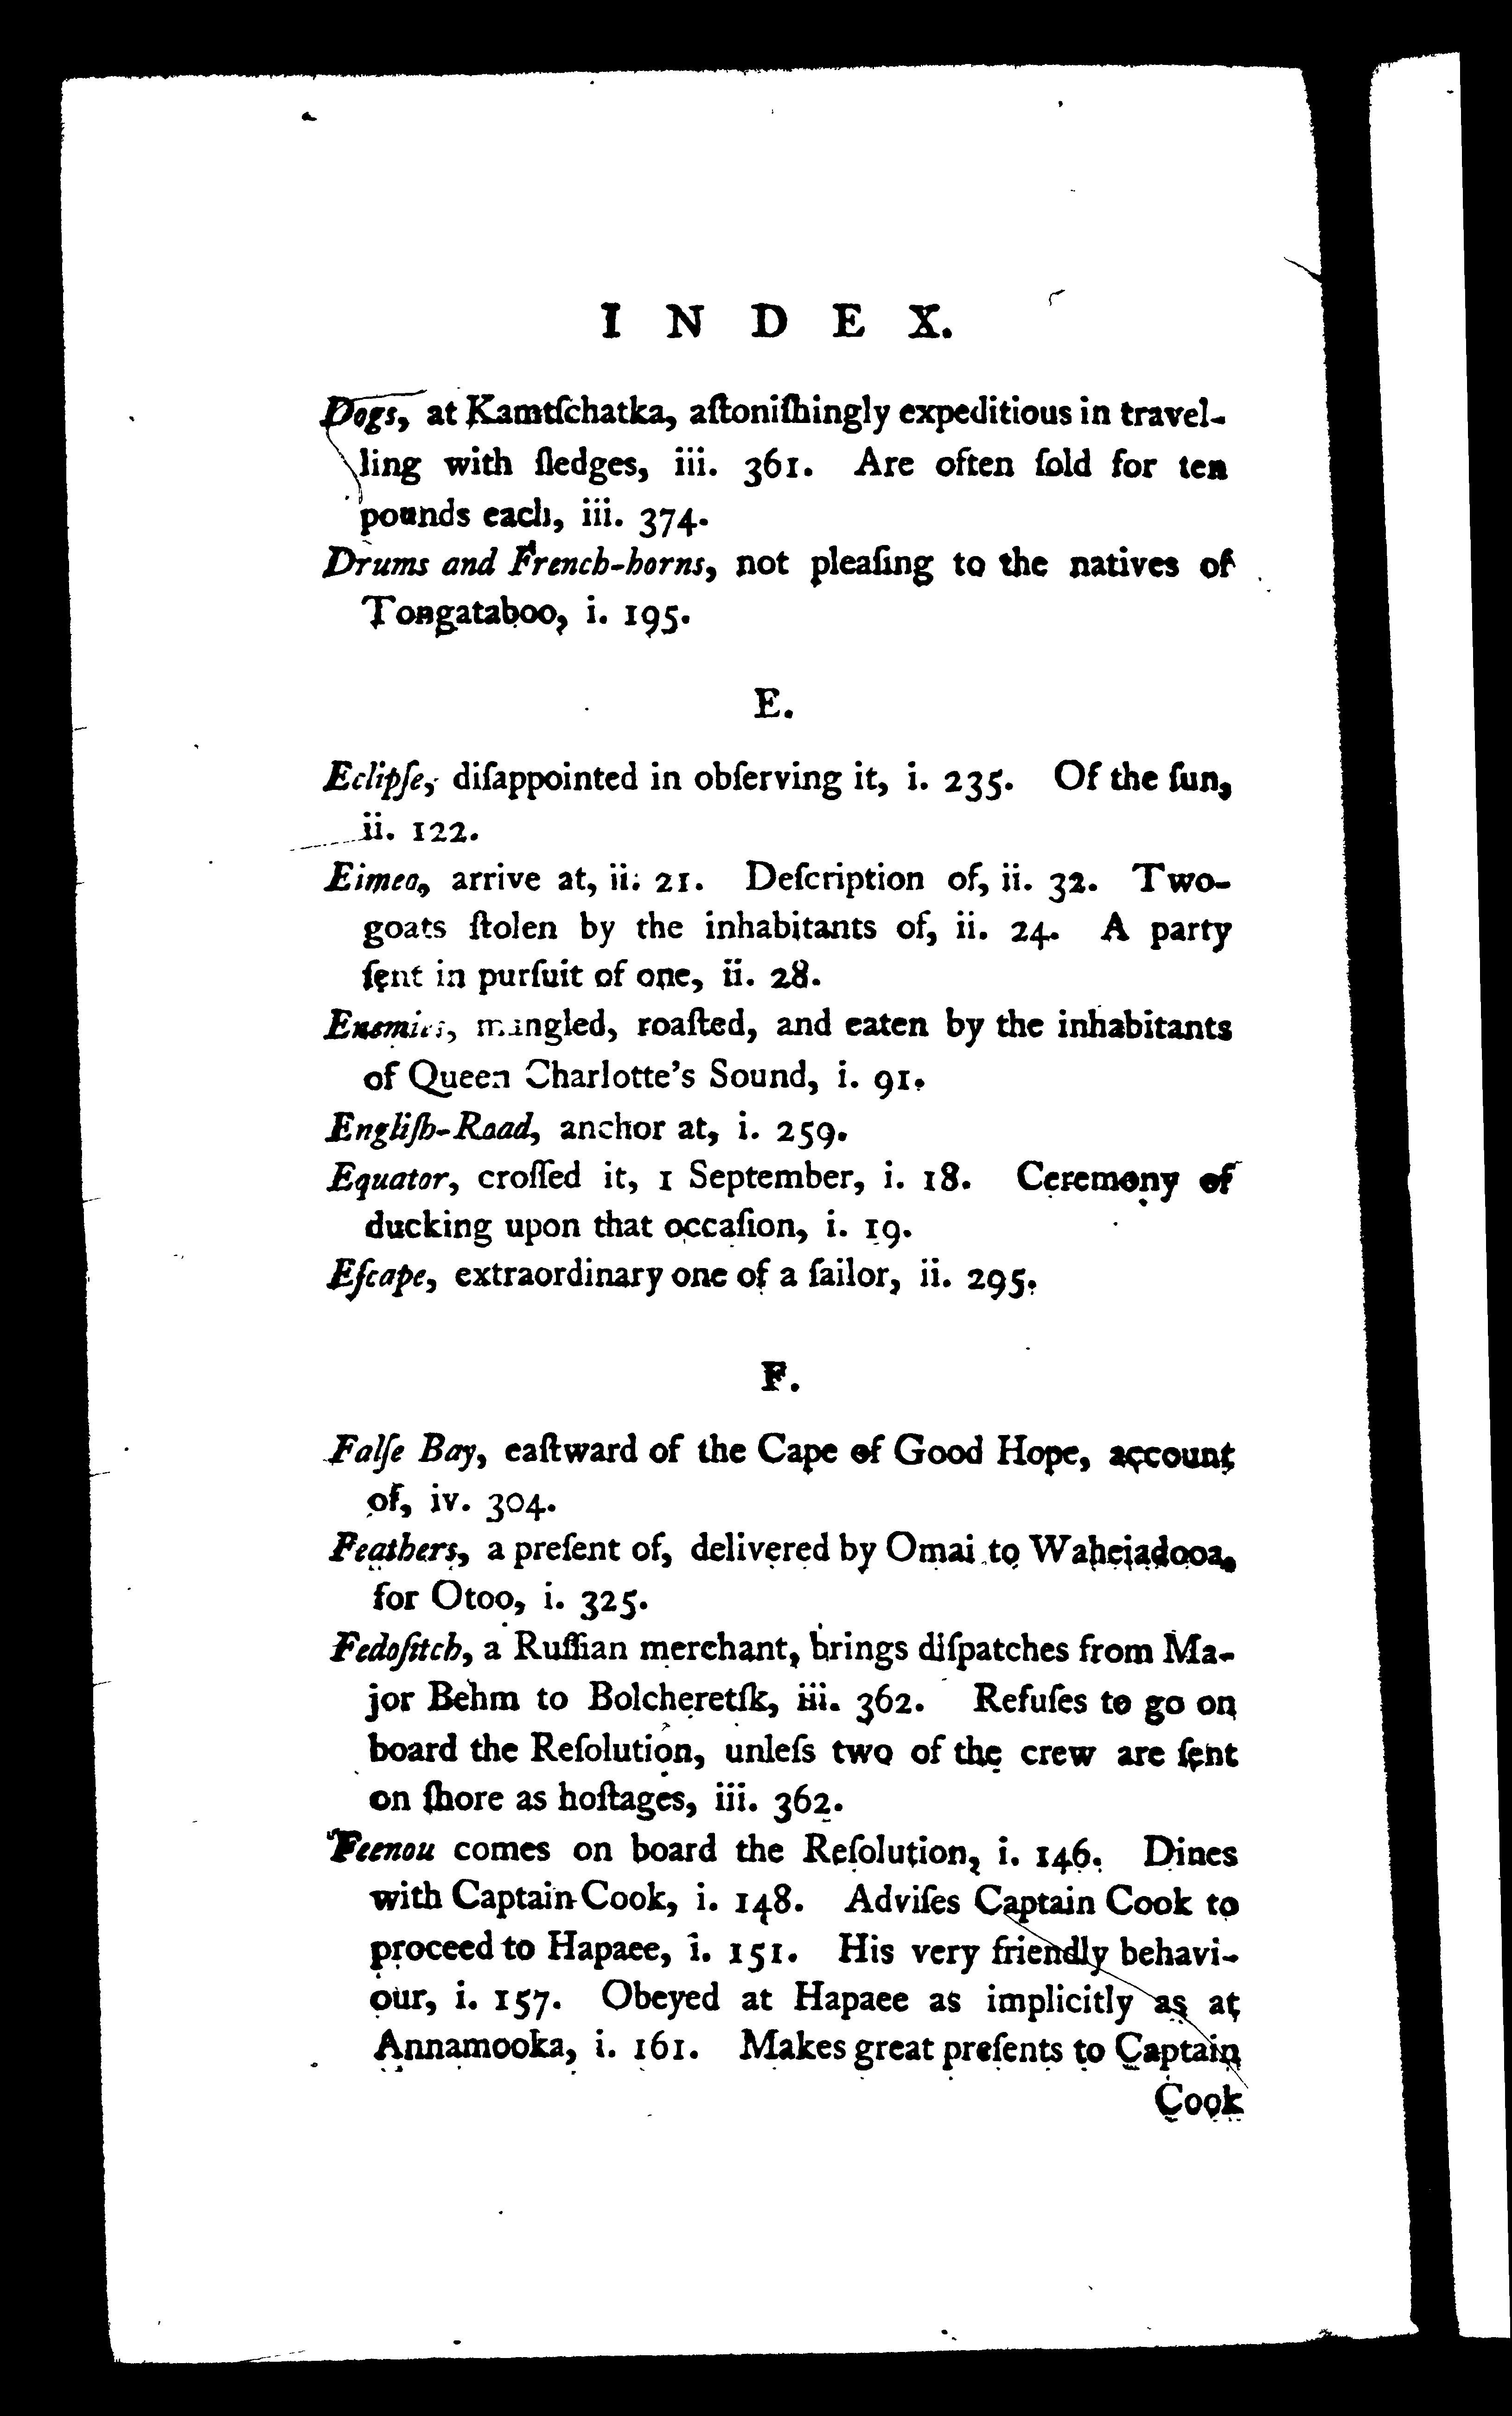 INDEX.
Dogs, at Kamtſchatka, aſtoniſhingly expeditious in travel-
ling with ſledges, iii. 361. Are often ſold for ten
pounds each, iii. 374.
Drums and French-horns, not pleaſing to the natives of
Tongataboo, i. 195.
E.
Eclipſe, diſappointed in obſerving it, i. 235. Of the ſun,
ii. 122.
Eimeo, arrive at, ii. 21. Deſcription of, ii. 32. Two-
goats ſtolen by the inhabitants of, ii. 24. A party
ſent in purſuit of one, ii. 28.
Enemies, mangled, roaſted, and eaten by the inhabitants
of Queen Charlotte's Sound, i. 91.
Engliſh-Road, anchor at, i. 259.
Equator, croſſed it, 1 September, i. 18. Ceremony of
ducking upon that occaſion, i. 19.
Eſcape, extraordinary one of a ſailor, ii. 295.
F.
Falſe Bay, eaſtward of the Cape of Good Hope, account
of, iv. 304.
Feathers, a preſent of, delivered by Omai to Waheiadooa,
for Otoo, i. 325.
Fedoſitch, a Ruſſian merchant, brings diſpatches from Ma-
jor Behm to Bolcheretſk, iii. 362. Refuſes to go on
board the Reſolution, unleſs two of the crew are ſent
on ſhore as hoſtages, iii. 362.
Feenou comes on board the Reſolution, i. 146. Dines
with Captain Cook, i. 148. Adviſes Captain Cook to
proceed to Hapaee, i. 151. His very friendly behavi-
our, i. 157. Obeyed at Hapaee as implicitly as at
Annamooka, i. 161. Makes great preſents to Captain
Cook